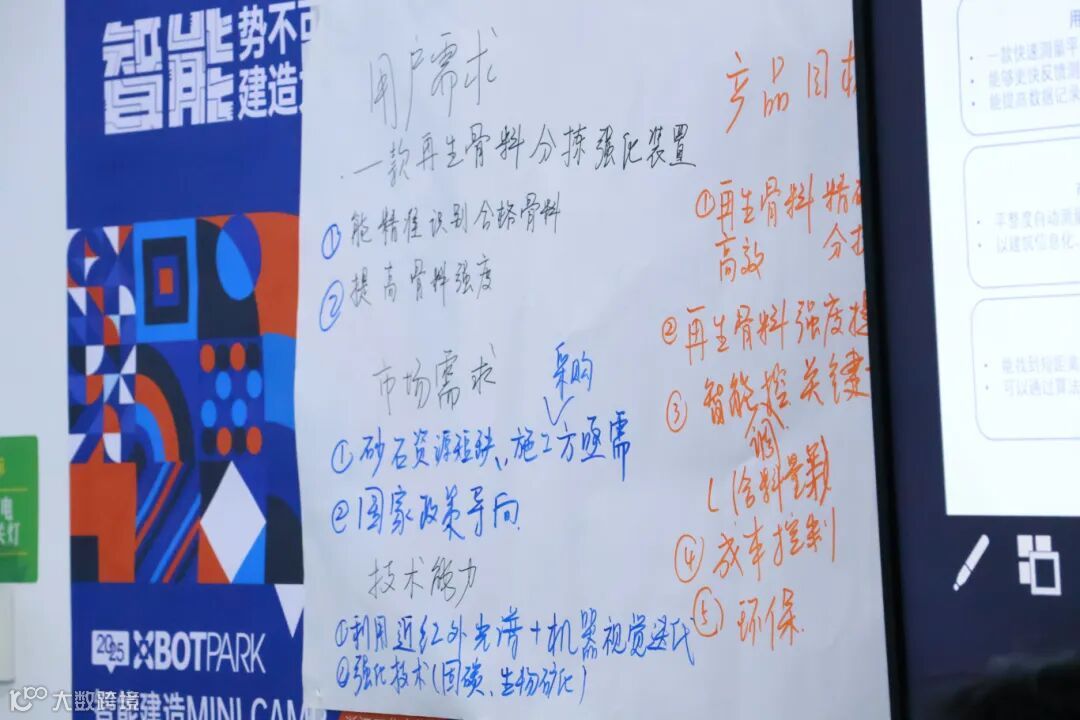 智能
势不可
建造
用户需求
一款再生骨料分拣强化装置
① 能精准识别合格骨料
② 提高骨料强度
市场需求
采购
① 砂石资源短缺、施工方亟需
② 国家政策导向
技术能力
① 利用近红外光谱+机器视觉迭代
② 强化技术(固碳、生物矿化)
产品目标
① 再生骨料精
高效 分
② 再生骨料强度提
③ 智能控关键
调
(给料量氣)
④ 成本控制
⑤ 环保
一款快速测量平
能够更快反馈测
能提高数据记录
平整度自动测量
以建筑信息化
能找到短距离
可以通过算法
电
关灯
2025 XBOTPARK
智能建造MINI CAMP
大数跨境